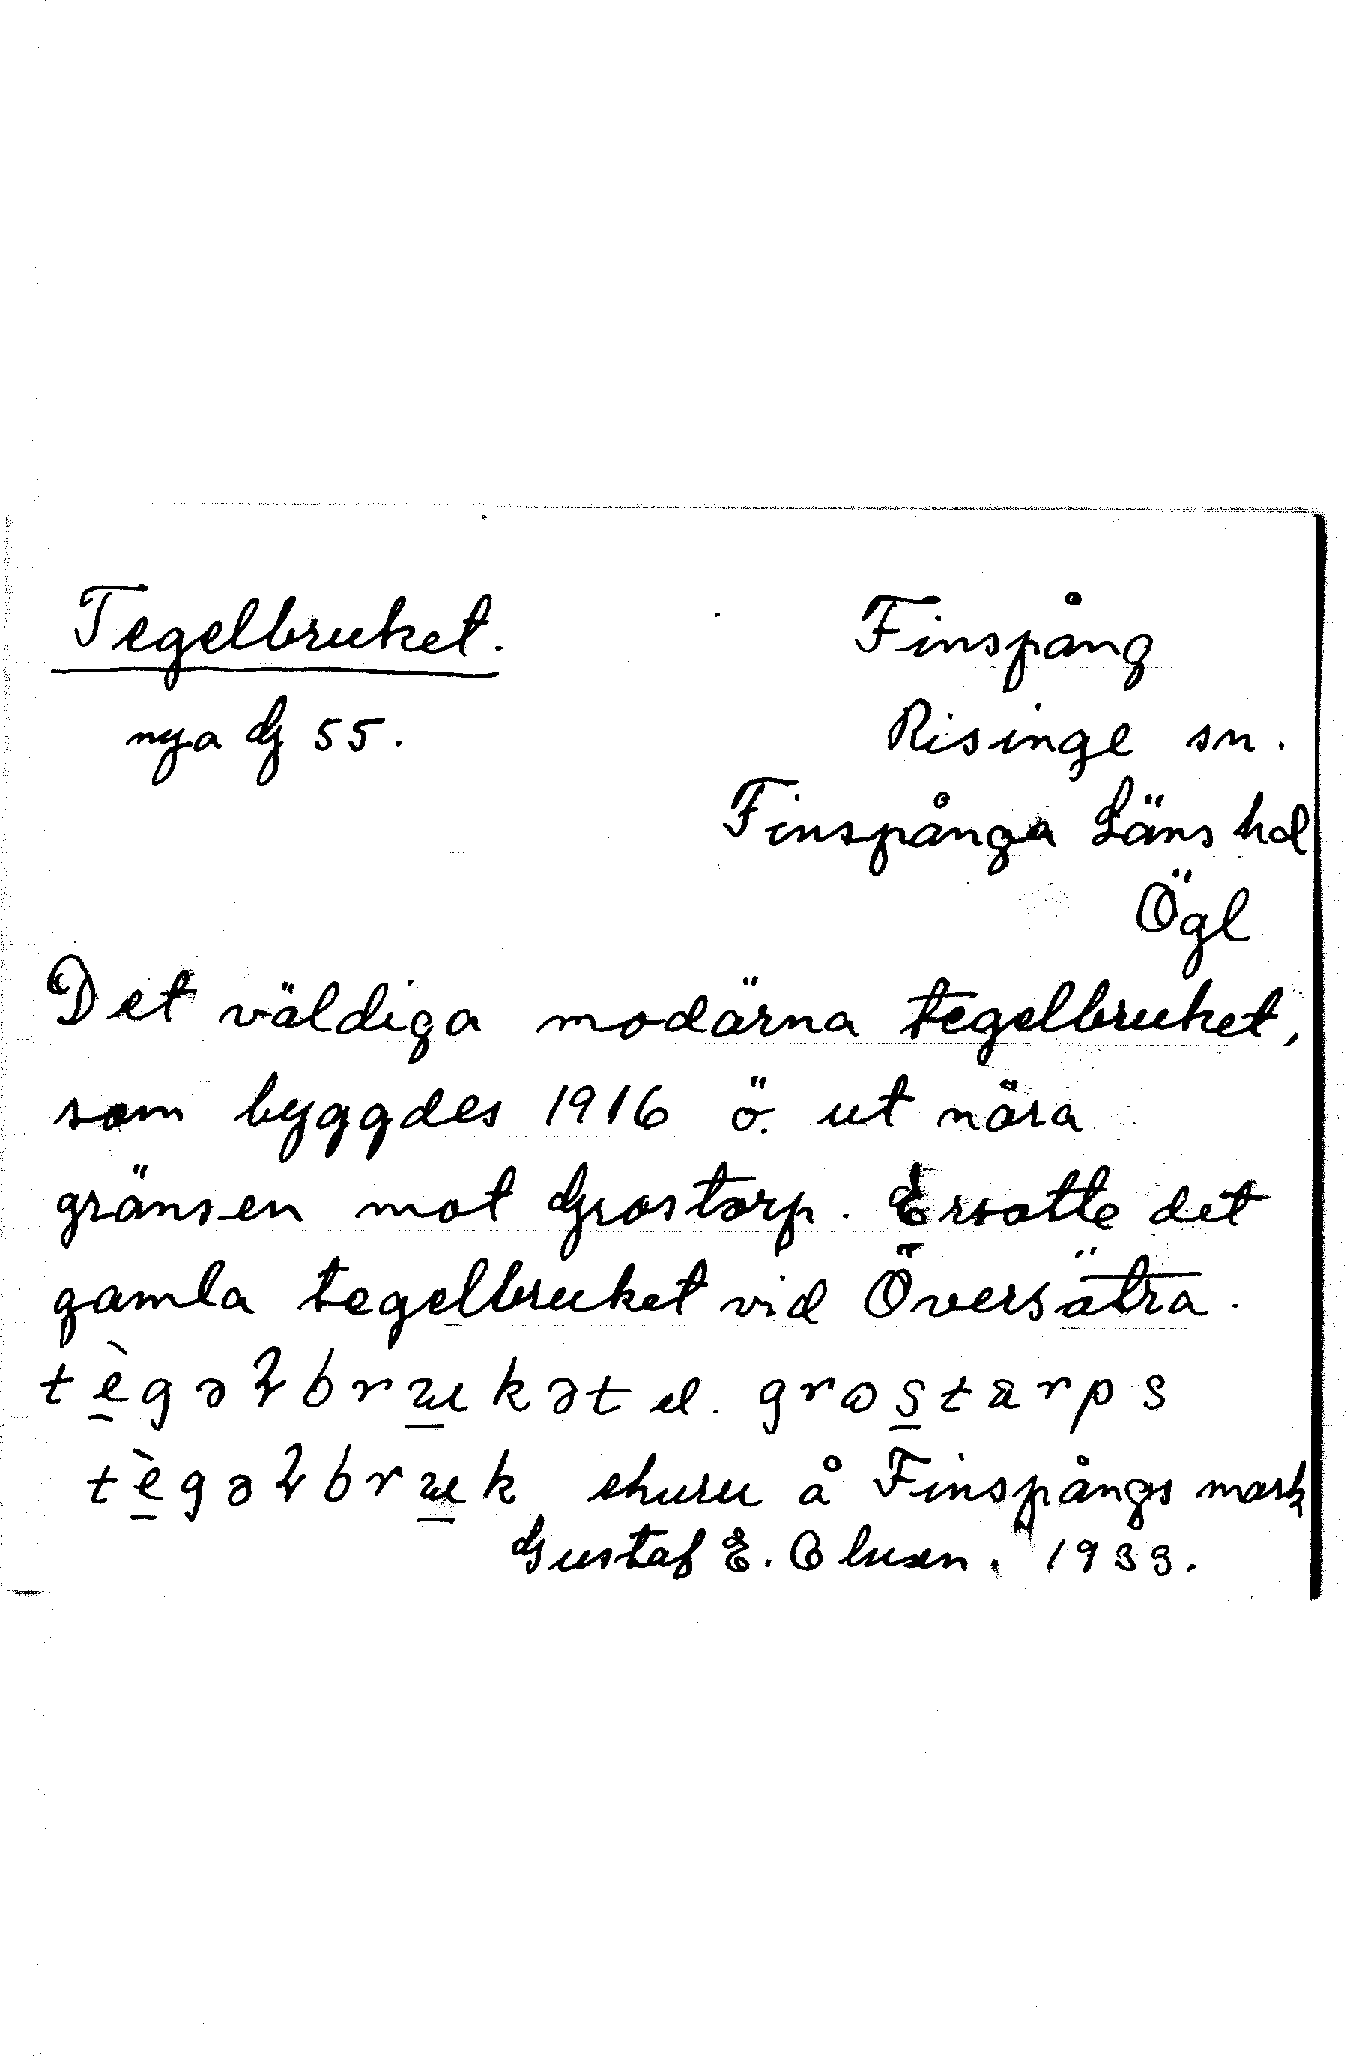 Tegelbruket.
Finspång
nya G 55.
Risinge sn.
Finspånga Läns hd
Ögl
Det väldiga modärna tegelbruket,
som byggdes 1916 ö. ut nära
gränsen mot Grostorp. Ersatte det
gamla tegelbruket vid Översätra.
el.
ehuru å Finspångs mark
Gustaf E. 1933.